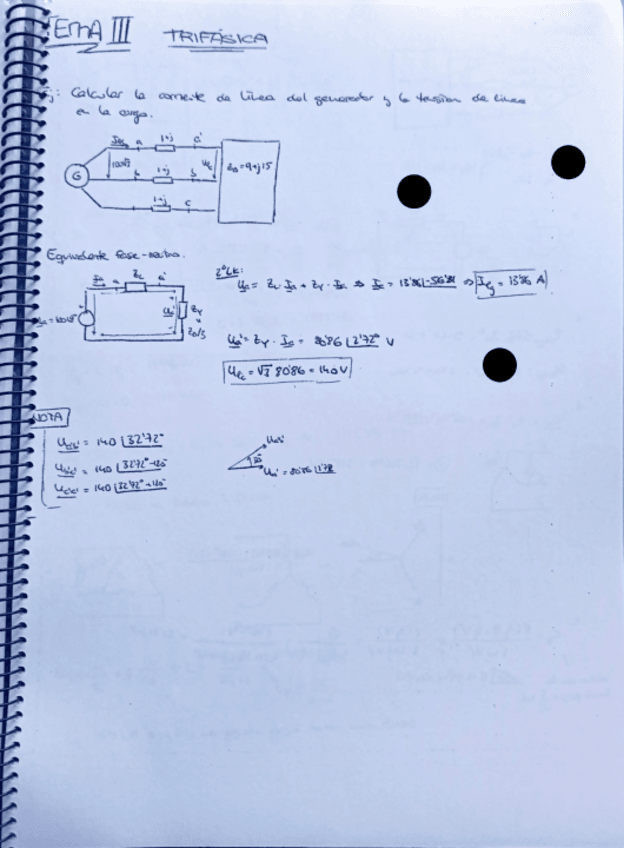 TEMA III TRIFÁSICA
Ej: Calcular la corriente de línea del generador y la tensión de línea
en la carga.
a 1+j a'
G 100√3 b 1+j b' Z_Δ = 9+j15
1+j c'
Equivalente fase-neutro.
2ºLK:
U_a = Z_L · I_a + Z_Y · I_a ⇒ I_a = 13'86 |-56'31 ⇒ I_Lg = 13'86 A
Z_L a'
Z_Y
Z_Δ/3
U_a' = Z_Y · I_a = 80'86 |2'72° V
U_Lc = √3 80'86 = 140V
NOTA
U_a'b' = 140 |32'72°
U_b'c' = 140 |32'72°-120°
U_c'a' = 140 |32'72°+120°
30°
U_a' = 80'86 |2'72